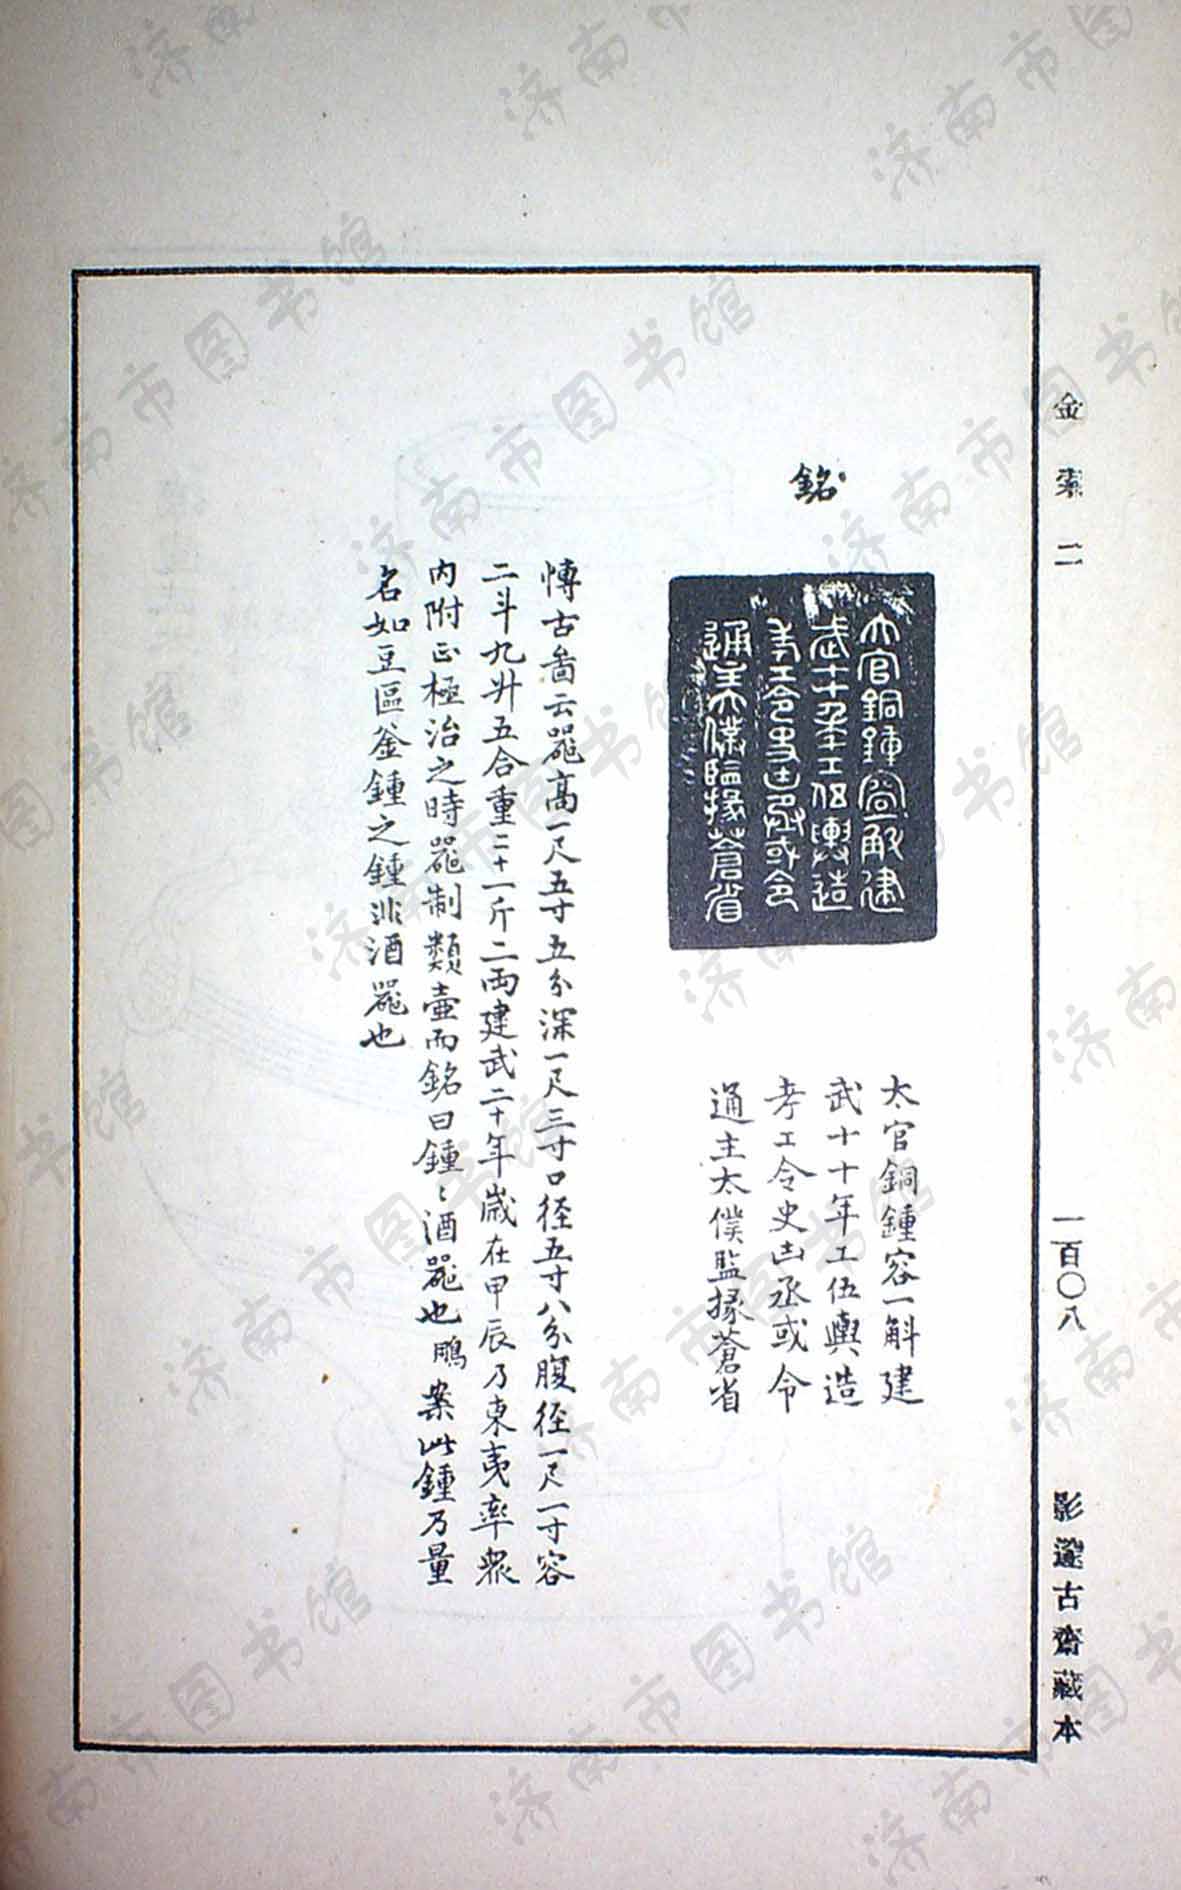 金索二
一百〇八
影遵古齋藏本
銘
太官銅鍾容一斛建
武十十年工伍輿造
考工令史凷丞或令
通主太僕監掾蒼省
愽古啚云噐高一尺五寸五分深一尺三寸口径五寸八分腹径一尺一寸容
二斗九升五合重二十一斤二兩建武二十年歲在甲辰乃東夷率衆
内附正極治之時噐制類壷而銘曰鍾〻酒噐也鵬案此鍾乃量
名如豆區釜鍾之鍾非酒噐也
济南市图书馆